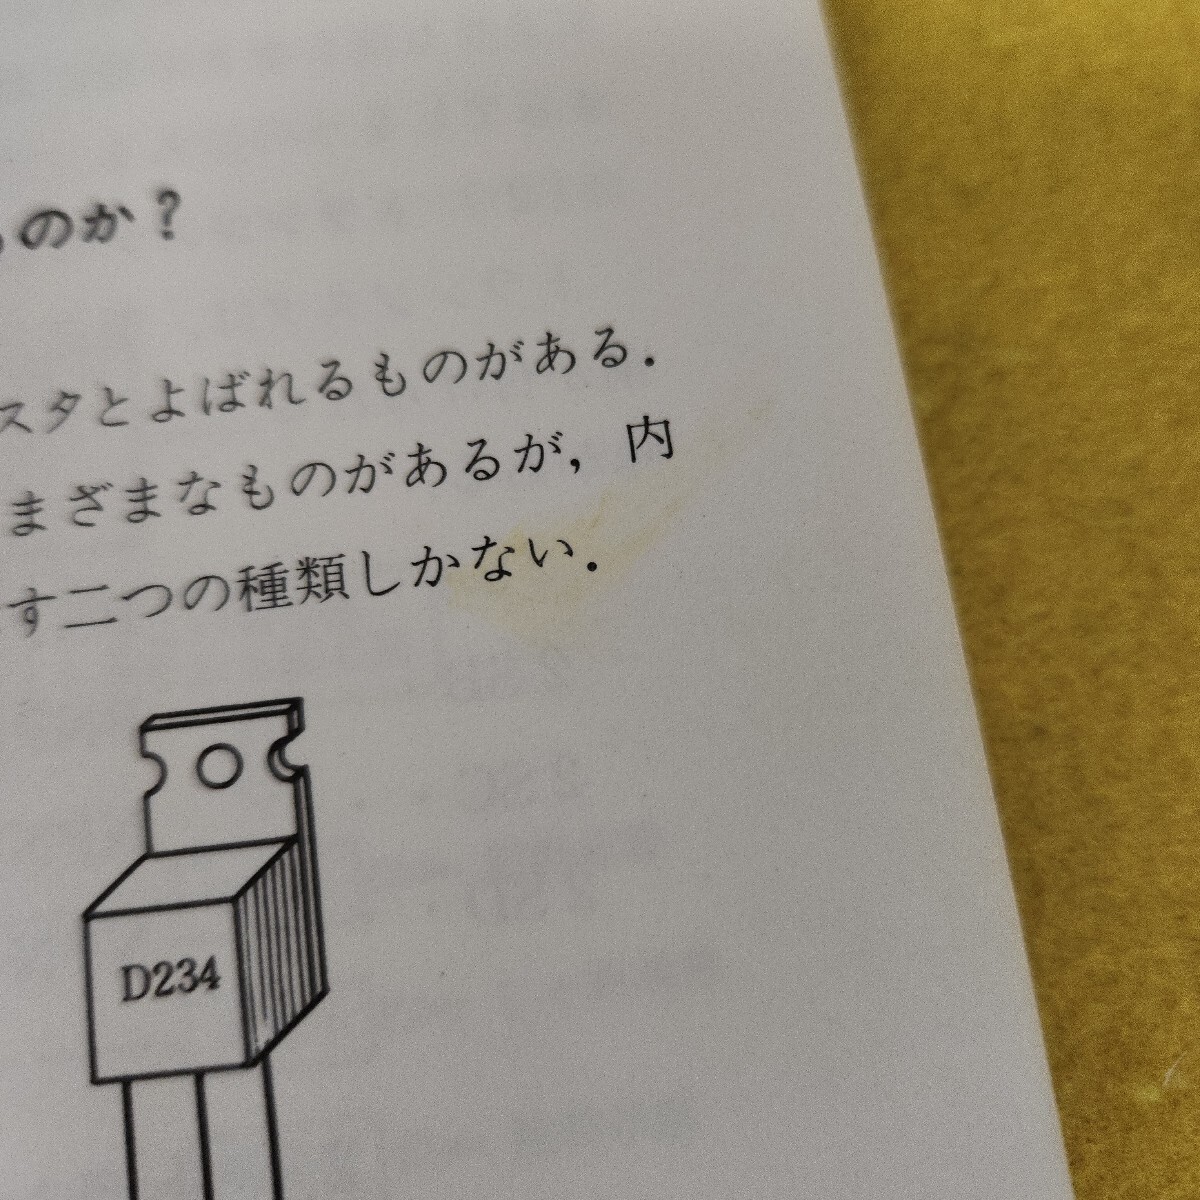 のか？
スタとよばれるものがある．
まざまなものがあるが，内
す二つの種類しかない．
D234